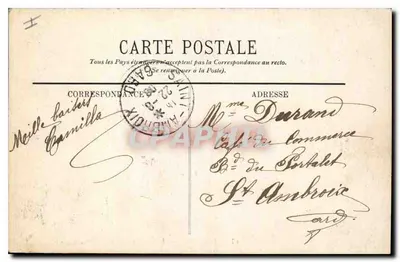 CARTE POSTALE
Tous les Pays étrangers n'acceptent pas la Correspondance au recto.
(Se renseigner à la Poste).
CORRESPONDANCE
ADRESSE
Mille baisers
Camilla
SAINT-AMBROIX
GARD
Mme Durand
Café du Commerce
Bd du Portalet
St Ambroix
Gard